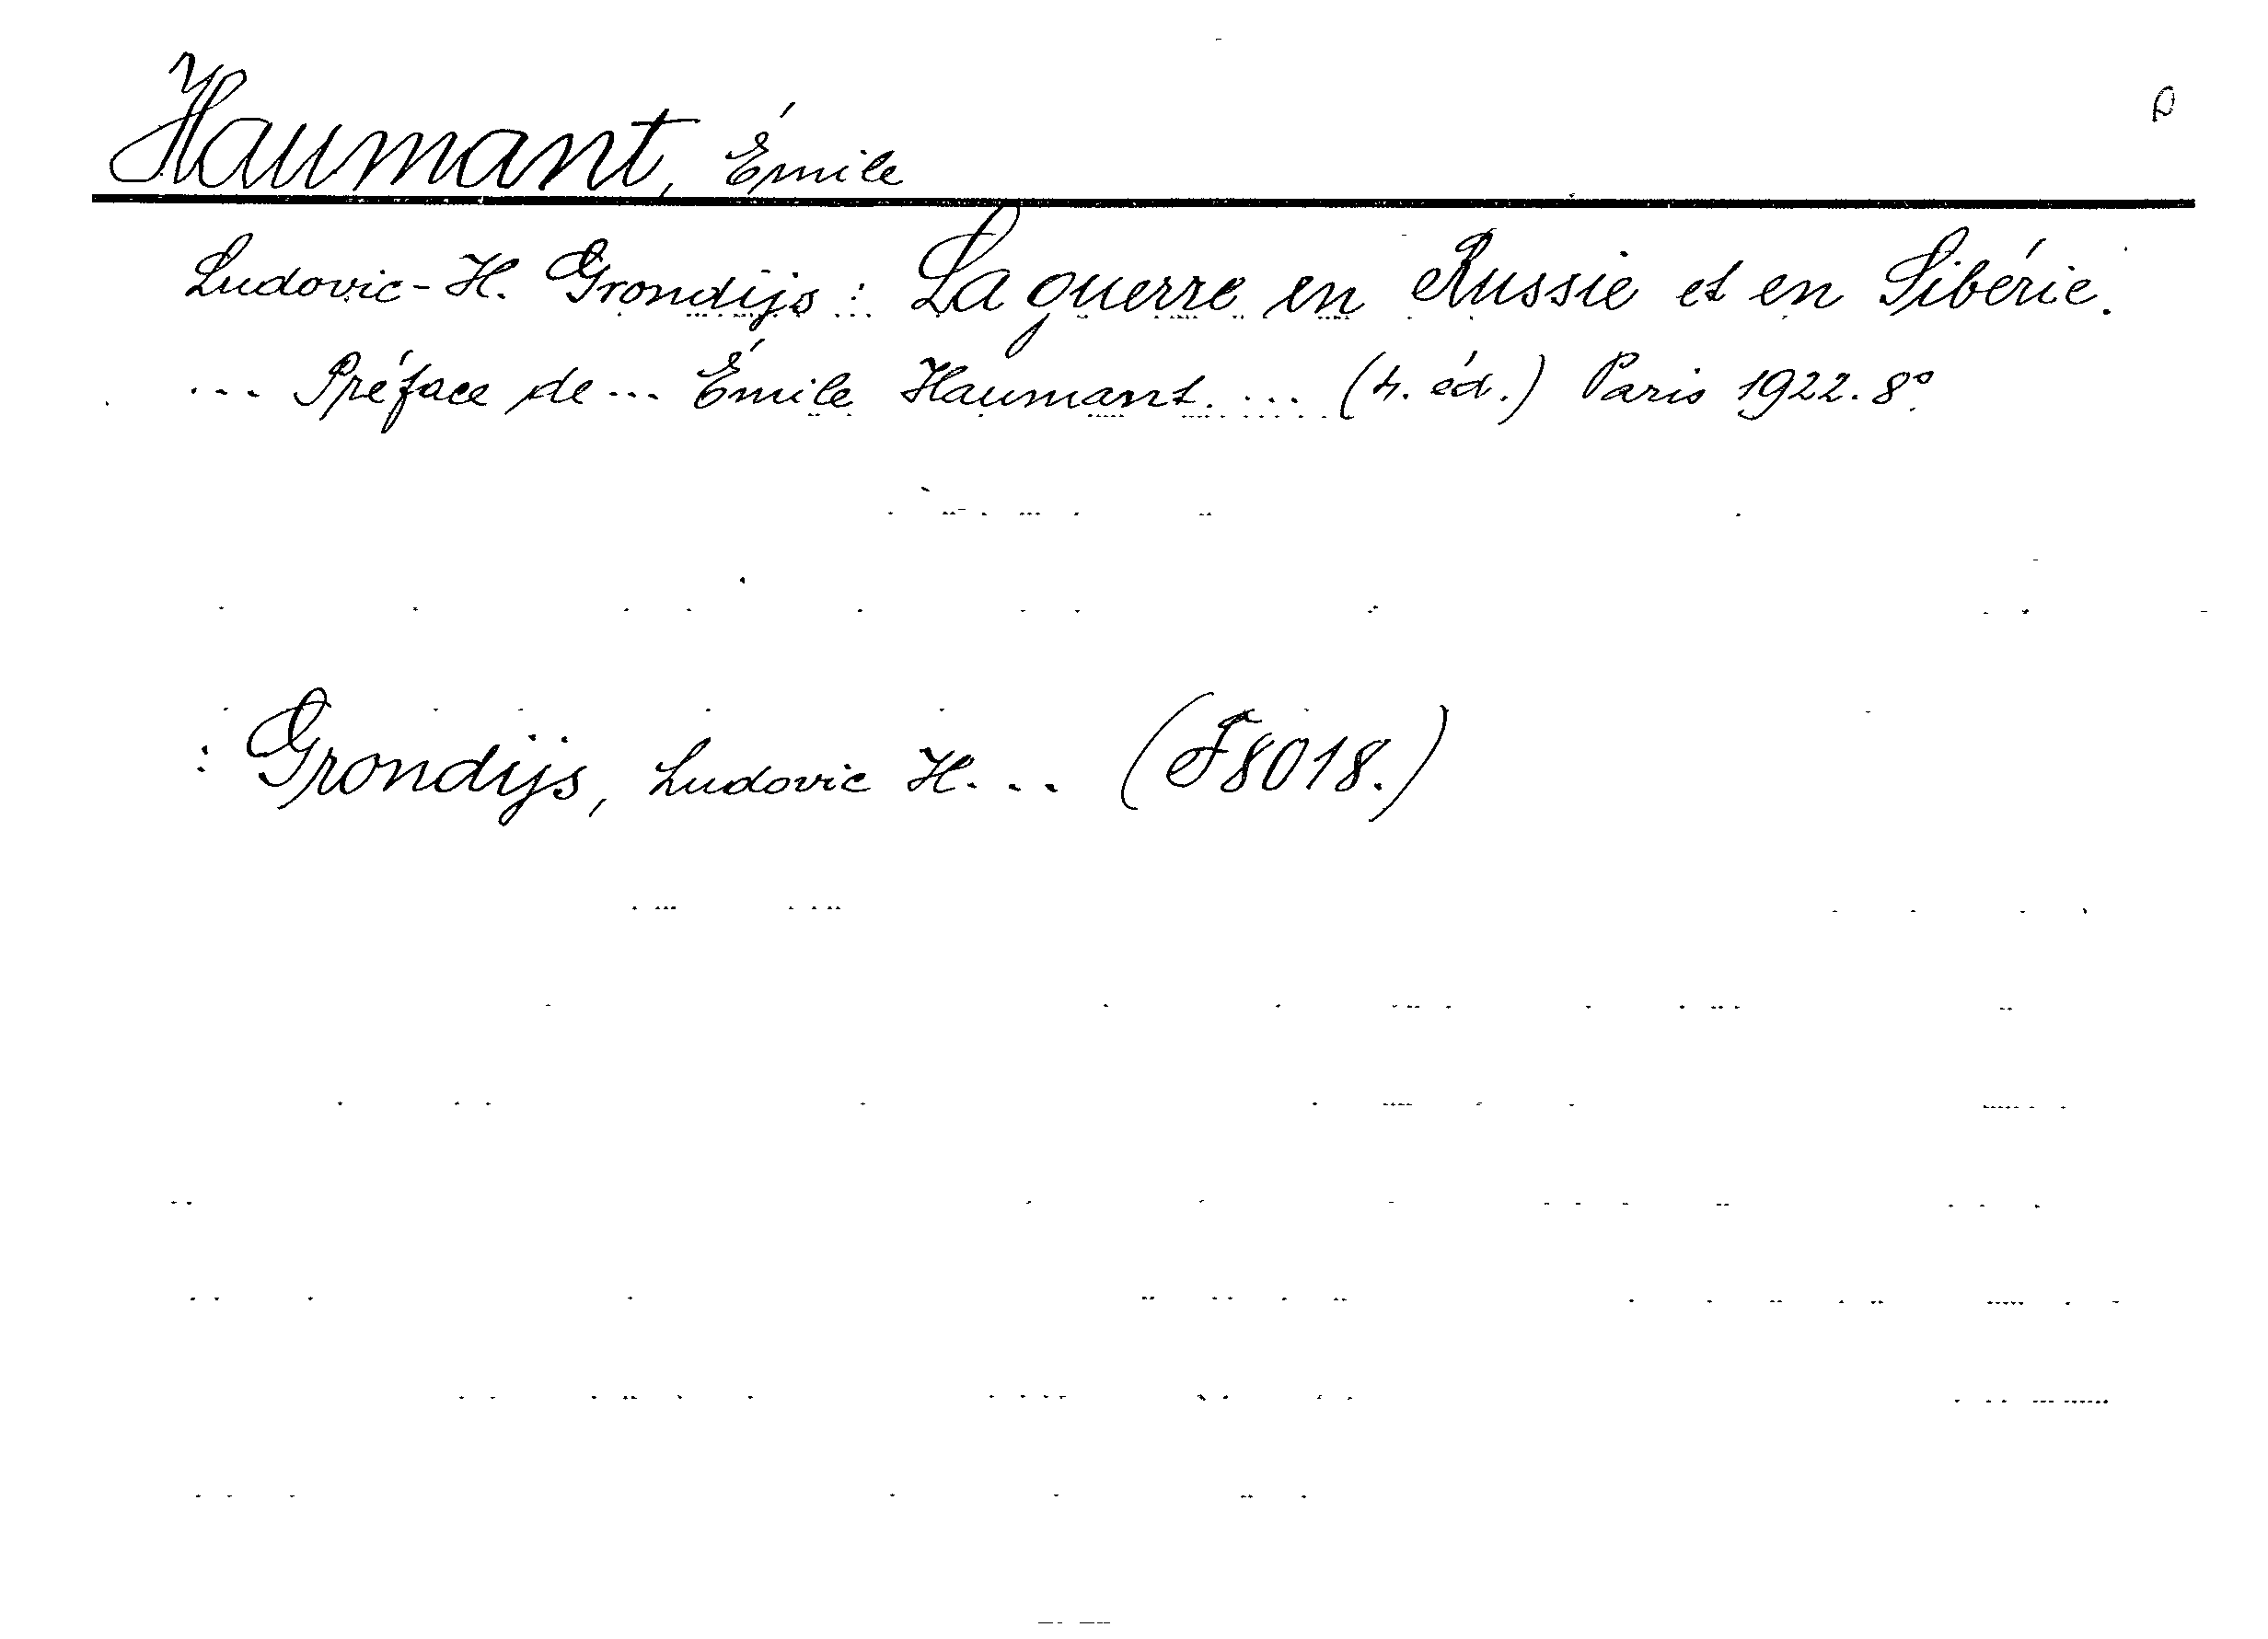 Haumant, Émile
Ludovic-H. Grondijs: La guerre en Russie et en Sibérie.
... Préface de ... Émile Haumant. ... (4. éd.) Paris 1922. 8°
: Grondijs, Ludovic H. .. (F8018.)